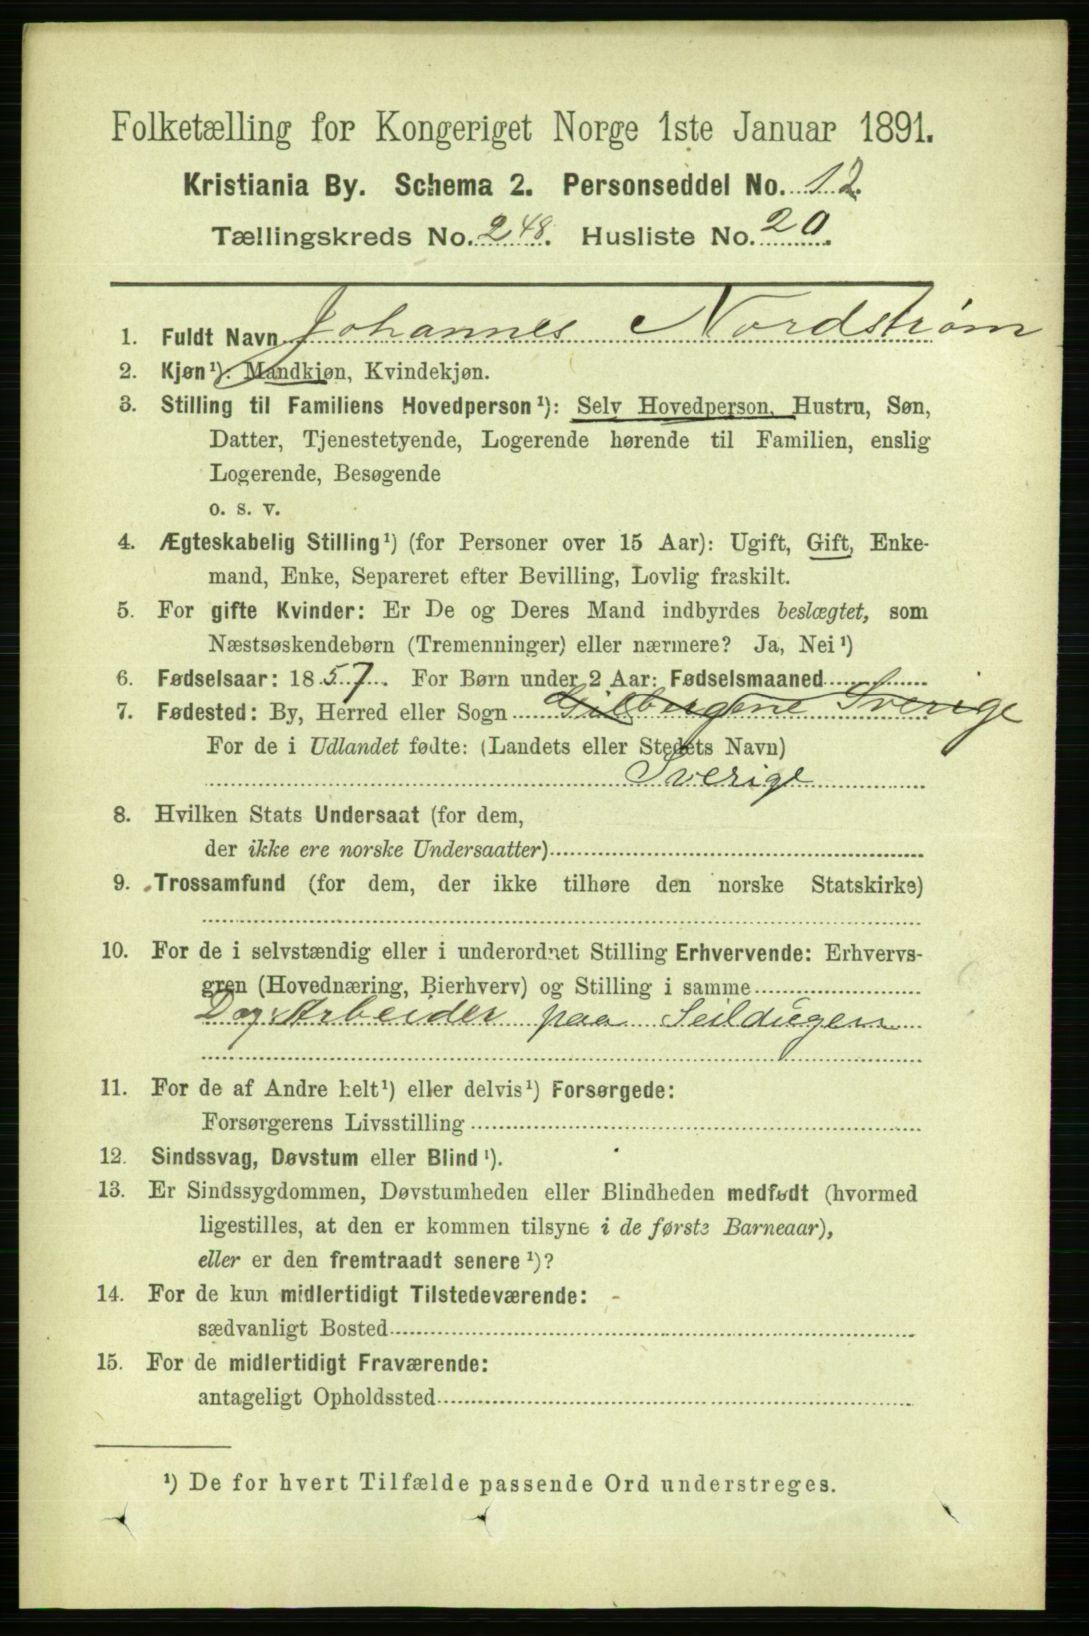 Folketælling for Kongeriget Norge 1ste Januar 1891.
Kristiania By. Schema 2. Personseddel No. 12.
Tællingskreds No. 248. Husliste No. 20.
1. Fuldt Navn Johannes Nordstrøm
2. Kjøn¹): Mandkjøn, Kvindekjøn.
3. Stilling til Familiens Hovedperson¹): Selv Hovedperson, Hustru, Søn,
Datter, Tjenestetyende, Logerende hørende til Familien, enslig
Logerende, Besøgende
o. s. v.
4. Ægteskabelig Stilling¹) (for Personer over 15 Aar): Ugift, Gift, Enke-
mand, Enke, Separeret efter Bevilling, Lovlig fraskilt.
5. For gifte Kvinder: Er De og Deres Mand indbyrdes beslægtet, som
Næstsøskendebørn (Tremenninger) eller nærmere? Ja, Nei¹)
6. Fødselsaar: 1857. For Børn under 2 Aar: Fødselsmaaned
7. Fødested: By, Herred eller Sogn Sverige
For de i Udlandet fødte: (Landets eller Stedets Navn)
Sverige
8. Hvilken Stats Undersaat (for dem,
der ikke ere norske Undersaatter)
9. Trossamfund (for dem, der ikke tilhøre den norske Statskirke)
10. For de i selvstændig eller i underordnet Stilling Erhvervende: Erhvervs-
gren (Hovednæring, Bierhverv) og Stilling i samme
Dag Arbeider paa Seildugen
11. For de af Andre helt¹) eller delvis¹) Forsørgede:
Forsørgerens Livsstilling
12. Sindssvag, Døvstum eller Blind¹).
13. Er Sindssygdommen, Døvstumheden eller Blindheden medfødt (hvormed
ligestilles, at den er kommen tilsyne i de første Barneaar),
eller er den fremtraadt senere¹)?
14. For de kun midlertidigt Tilstedeværende: -
sædvanligt Bosted
15. For de midlertidigt Fraværende:
antageligt Opholdssted
¹) De for hvert Tilfælde passende Ord understreges.